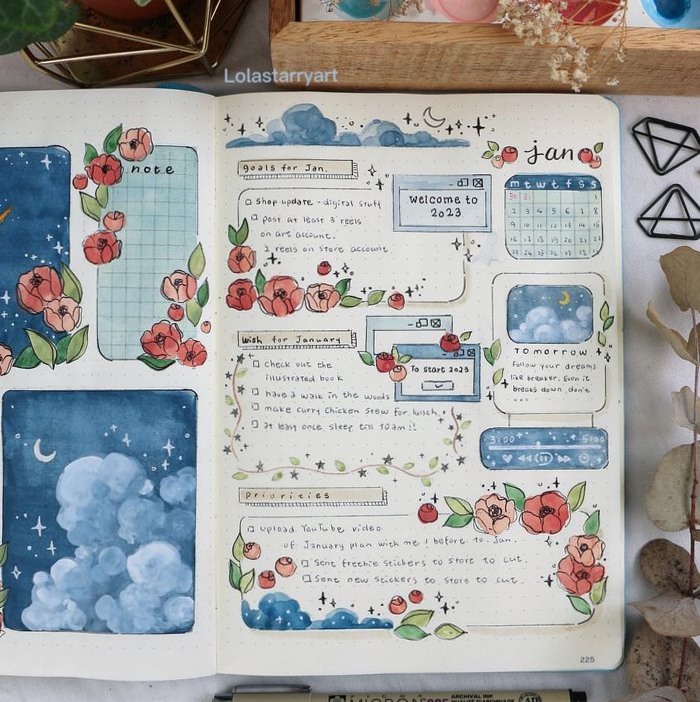 Lolastarryart
note
jan
goals for Jan.
shop update - digital stuff
post at least 3 reels
on art account.
2 reels on store account
welcome to
2023
m t w t f s s
30 31 1
2 3 4 5 6 7 8
9 10 11 12 13 14 15
16 17 18 19 20 21 22
Wish for January
check out the
illustrated book
have a walk in the woods
make curry chicken stew for lunch
at least once sleep till 10am!!
To start 2023
Tomorrow
follow your dreams
like breaker. Even it
breaks down, don't
...
3:00 5:00
priorities
upload YouTube video
of January plan with me! before 10. Jan.
Sent freebie stickers to store to cut.
Sent new stickers to store to cut.
225
MICRON
ARCHIVAL INK